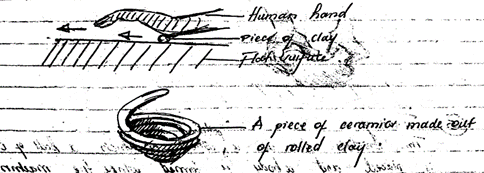 Human hand
piece of clay
Flat surface
A piece of ceramics made out
of rolled clay.